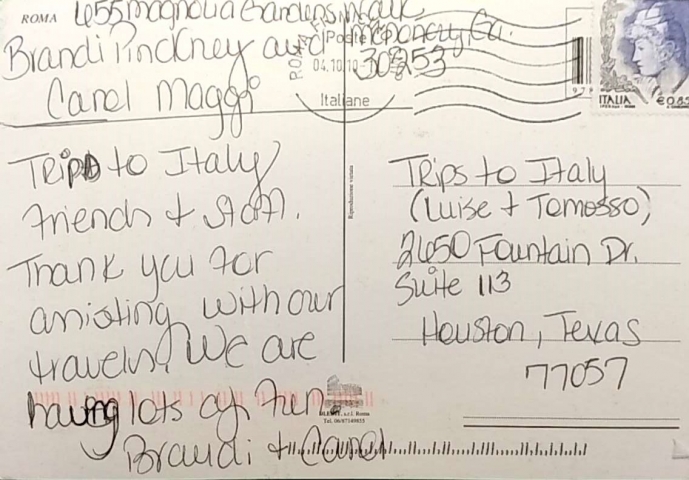 ROMA
655 Magnolia Gardens Walk
Brandi Pinckney and McDonough, Ga.
Carol Maggi 30253
ROMA
Poste
04.10.10
Italiane
ITALIA
€0,85
Trips to Italy
friends + staff.
Thank you for
assisting with our
travels! We are
having lots of fun.
Brandi + Carol
Trips to Italy
(Luise + Tomosso)
2650 Fountain Dr.
Suite 113
Houston, Texas
77057
Riproduzione vietata
s.r.l. Roma